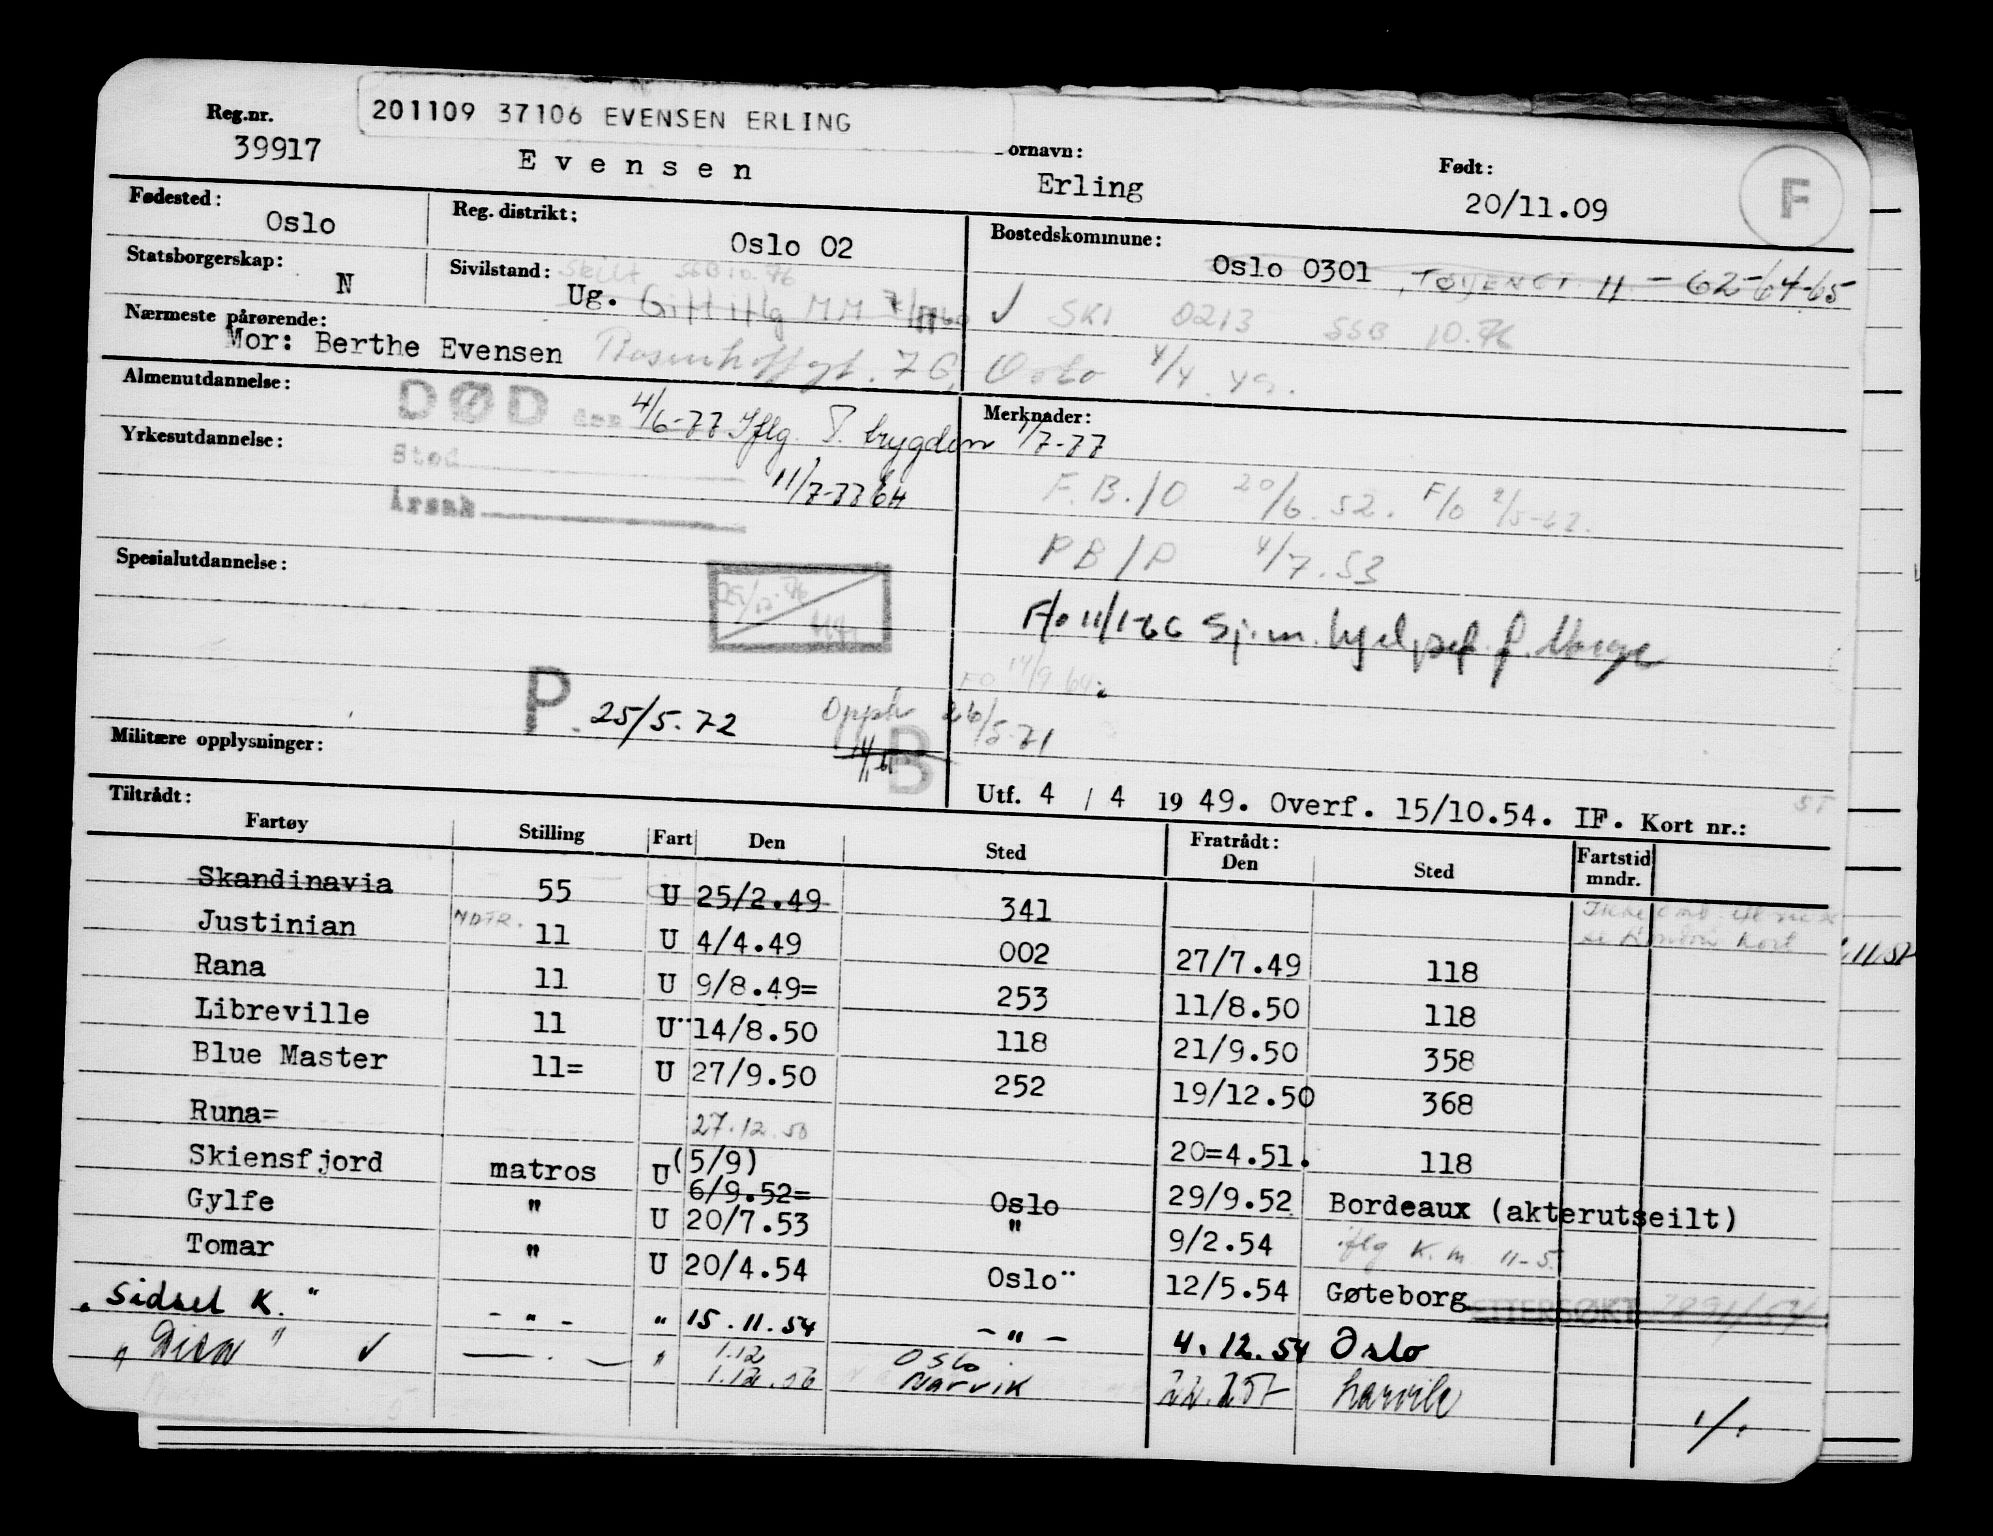 201109 37106 EVENSEN ERLING
Reg.nr. 39917 E v e n s e n ornavn: Erling Født: 20/11.09 F
Fødested: Oslo Reg. distrikt: Oslo 02 Bostedskommune: Oslo 0301 11 - 62-64-65
Statsborgerskap: N Sivilstand: Ug. Skilt SSB 10.76 Gift iflg
✓ SKI 0213 SSB 10.76
Nærmeste pårørende: Mor: Berthe Evensen 7 Oslo 4/4 49.
Almenutdannelse: DØD den 4/6-77 Iflg. T. trygden 1/7-77 Merknader:
Yrkesutdannelse: Sted 11/7-77
Årsak
F.B./O 20/6.52. F/O 2/5-62.
PB/P 4/7.53
Spesialutdannelse:
F/o 11/1-66 Sj.m. hjelpsef. f. Norge
FO 14/9.64
P. 25/5.72 Opph 26/5-71
B
Militære opplysninger:
Utf. 4 / 4 19 49. Overf. 15/10.54. IF. Kort nr.:
Tiltrådt: Fratrådt:
Fartøy Stilling Fart Den Sted Den Sted Fartstid mndr.
Skandinavia 55 U 25/2.49 341
Justinian 11 U 4/4.49 002 27/7.49 118
Rana 11 U 9/8.49= 253 11/8.50 118
Libreville 11 U¨ 14/8.50 118 21/9.50 358
Blue Master 11= U 27/9.50 252 19/12.50 368
Runa= 27.12.50 20=4.51. 118
Skiensfjord matros U (5/9) 6/9.52= Oslo 29/9.52 Bordeaux (akterutseilt)
Gylfe " U 20/7.53 " 9/2.54 iflg K.m 11-5.
Tomar " U 20/4.54 Oslo¨ 12/5.54 Gøteborg ETTERSØKT
"Sidsel K." - " - " 15.11.54 - " - 4.12.54 Oslo
✓ " 1.12 Oslo
1.12.56 Narvik